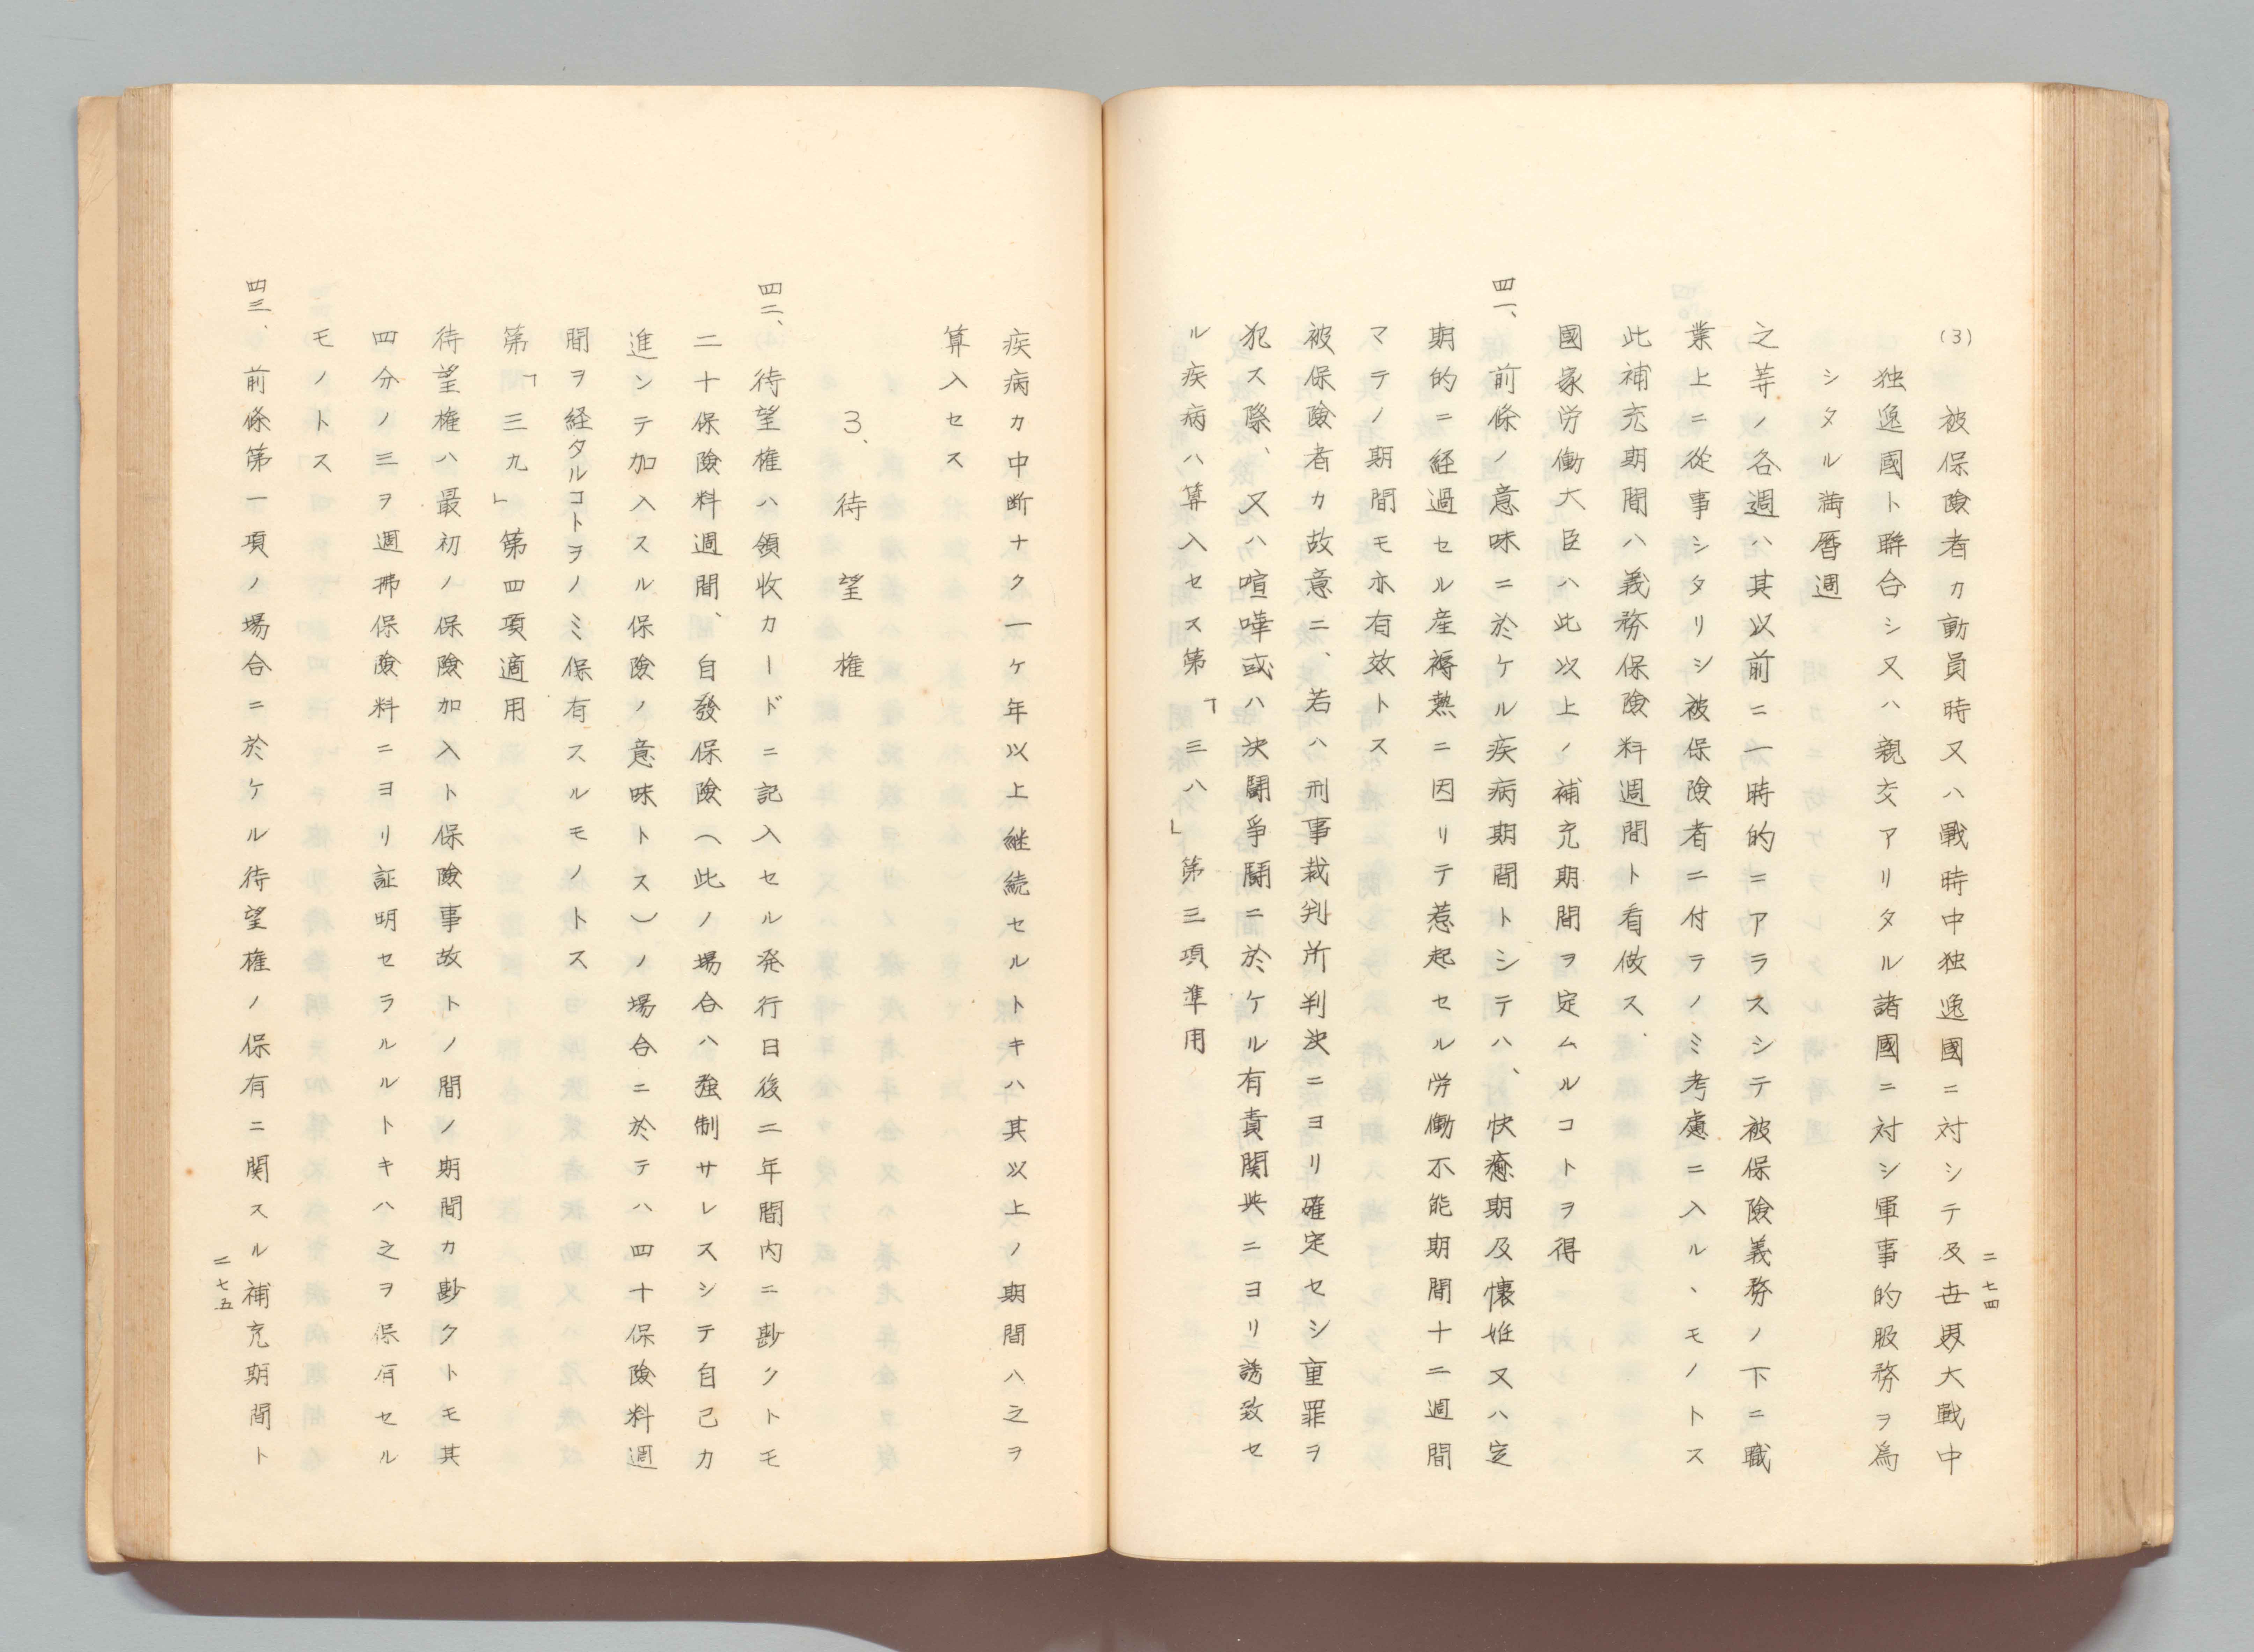 二七四
(3) 被保險者カ動員時又ハ戰時中独逸國ニ対シテ及世界大戰中
独逸國ト聯合シ又ハ親交アリタル諸國ニ対シ軍事的服務ヲ爲
シタル満暦週
之等ノ各週ハ其以前ニ一時的ニアラスシテ被保険義務ノ下ニ職
業上ニ從事シタリシ被保険者ニ付テノミ考慮ニ入ルヽモノトス
此補充期間ハ義務保険料週間ト看做ス、
國家労働大臣ハ此以上ノ補充期間ヲ定ムルコトヲ得
四一、前條ノ意味ニ於ケル疾病期間トシテハ、快癒期及懐妊又ハ定
期的ニ経過セル産褥熱ニ因リテ惹起セル労働不能期間十二週間
マテノ期間モ亦有效トス
被保險者カ故意ニ、若ハ刑事裁判所判決ニヨリ確定セシ重罪ヲ
犯ス際、又ハ喧嘩或ハ決闘爭鬪ニ於ケル有責関与ニヨリ誘致セ
ル疾病ハ算入セス第「三八」第三項準用
疾病カ中断ナク一ケ年以上継続セルトキハ其以上ノ期間ハ之ヲ
算入セス
3、待望権
四二、待望権ハ領收カードニ記入セル発行日後二年間内ニ尠クトモ
二十保険料週間、自發保険(此ノ場合ハ強制サレスシテ自己カ
進ンテ加入スル保険ノ意味トス)ノ場合ニ於テハ四十保険料週
間ヲ経タルコトヲノミ保有スルモノトス
第「三九」第四項適用
待望権ハ最初ノ保険加入ト保険事故トノ間ノ期間カ尠クトモ其
四分ノ三ヲ週拂保険料ニヨリ証明セラルルトキハ之ヲ保有セル
モノトス
四三、前條第一項ノ場合ニ於ケル待望権ノ保有ニ関スル補充期間ト
二七五